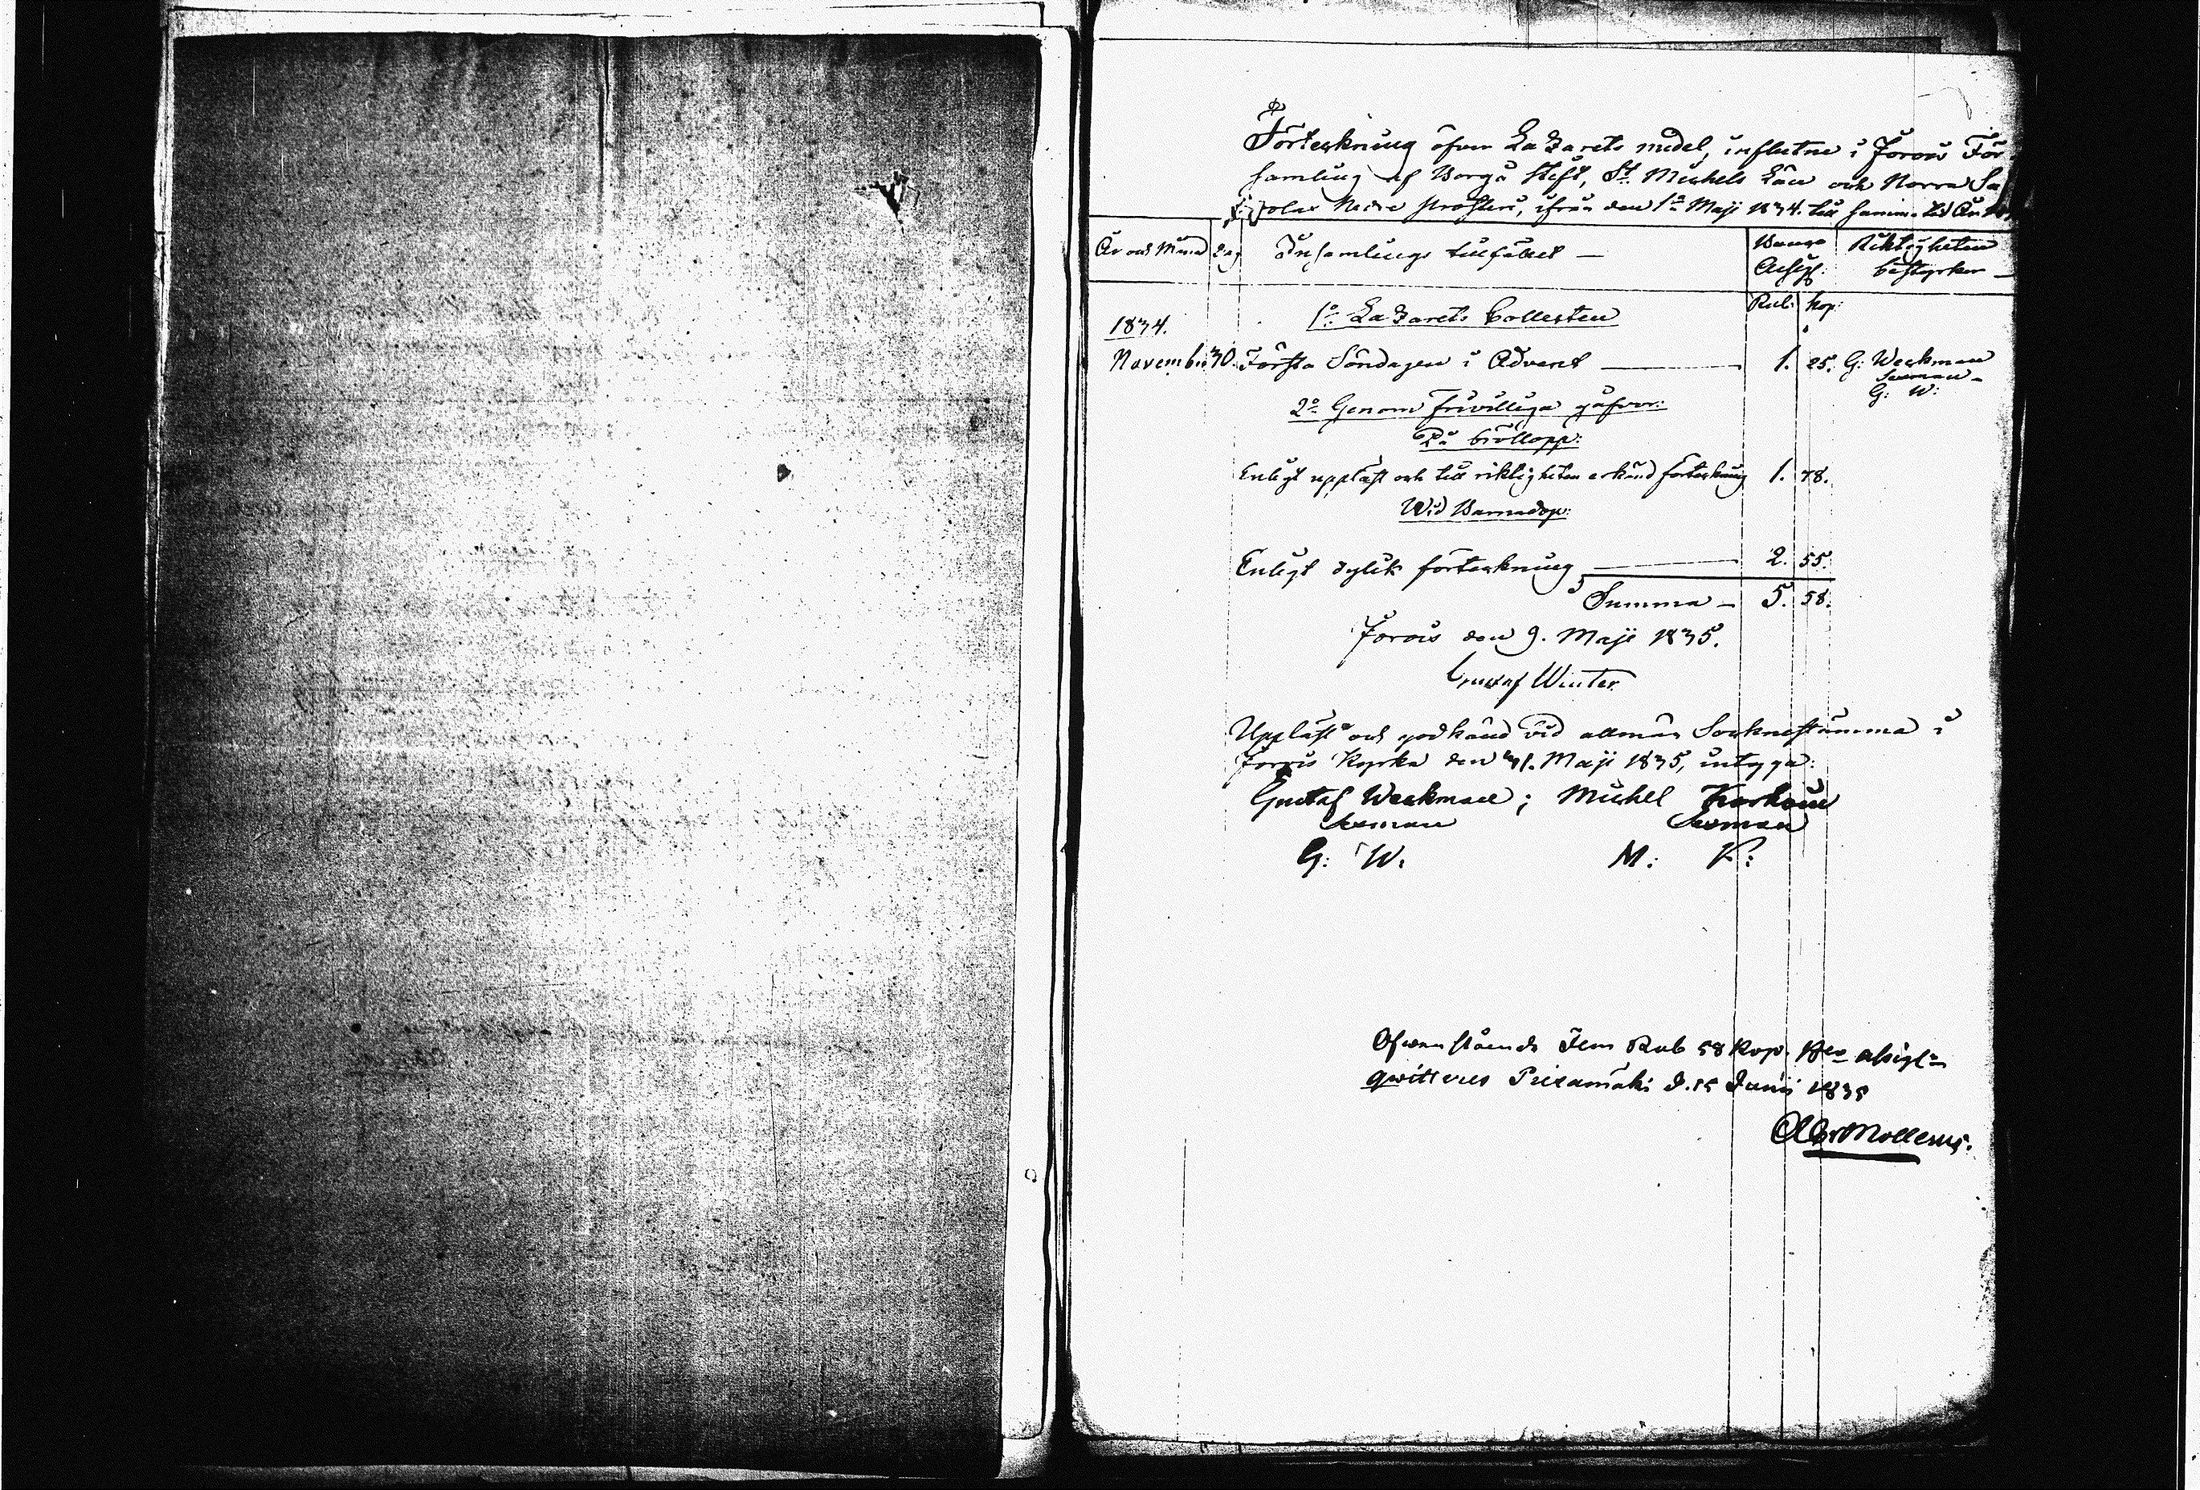 Förteckning öfver Lazarets medel, influtne i Jorois För-
samling af Borgå Stift, St. Michels Län och Norra Sa-
volax Nedre Prosteri, ifrån den 1:a Maji 1834. till samma tid År
År och Månad Dag Insamlings tillfället — Banco Assign: Riktigheten bestyrker —
Rub: kop:
1834. 1:o Lazarets Collecten
November 30. Första Söndagen i Advent — 1. 25. G: Weckman
Sexman
G: W:
2:o Genom frivilliga gåfvor:
På bröllopp:
Enligt uppläst och till riktigheten erkänd förteckning 1. 78.
Wid Barnadop:
Enligt dylik förteckning — 2. 55.
Summa — 5. 58.
Jorois den 9. Maji 1835.
Gustaf Winter
Uppläst och godkänd vid allmän Socknestämma i
Jorois Kyrka den 31. Maji 1835, intyga:
Gustaf Weckman; Michel
Sexman Sexman
G: W. M: K:
Ofvanstående Fem Rub 58 Kop. B:co assign:
qvitteras d. 15 Junii 1835